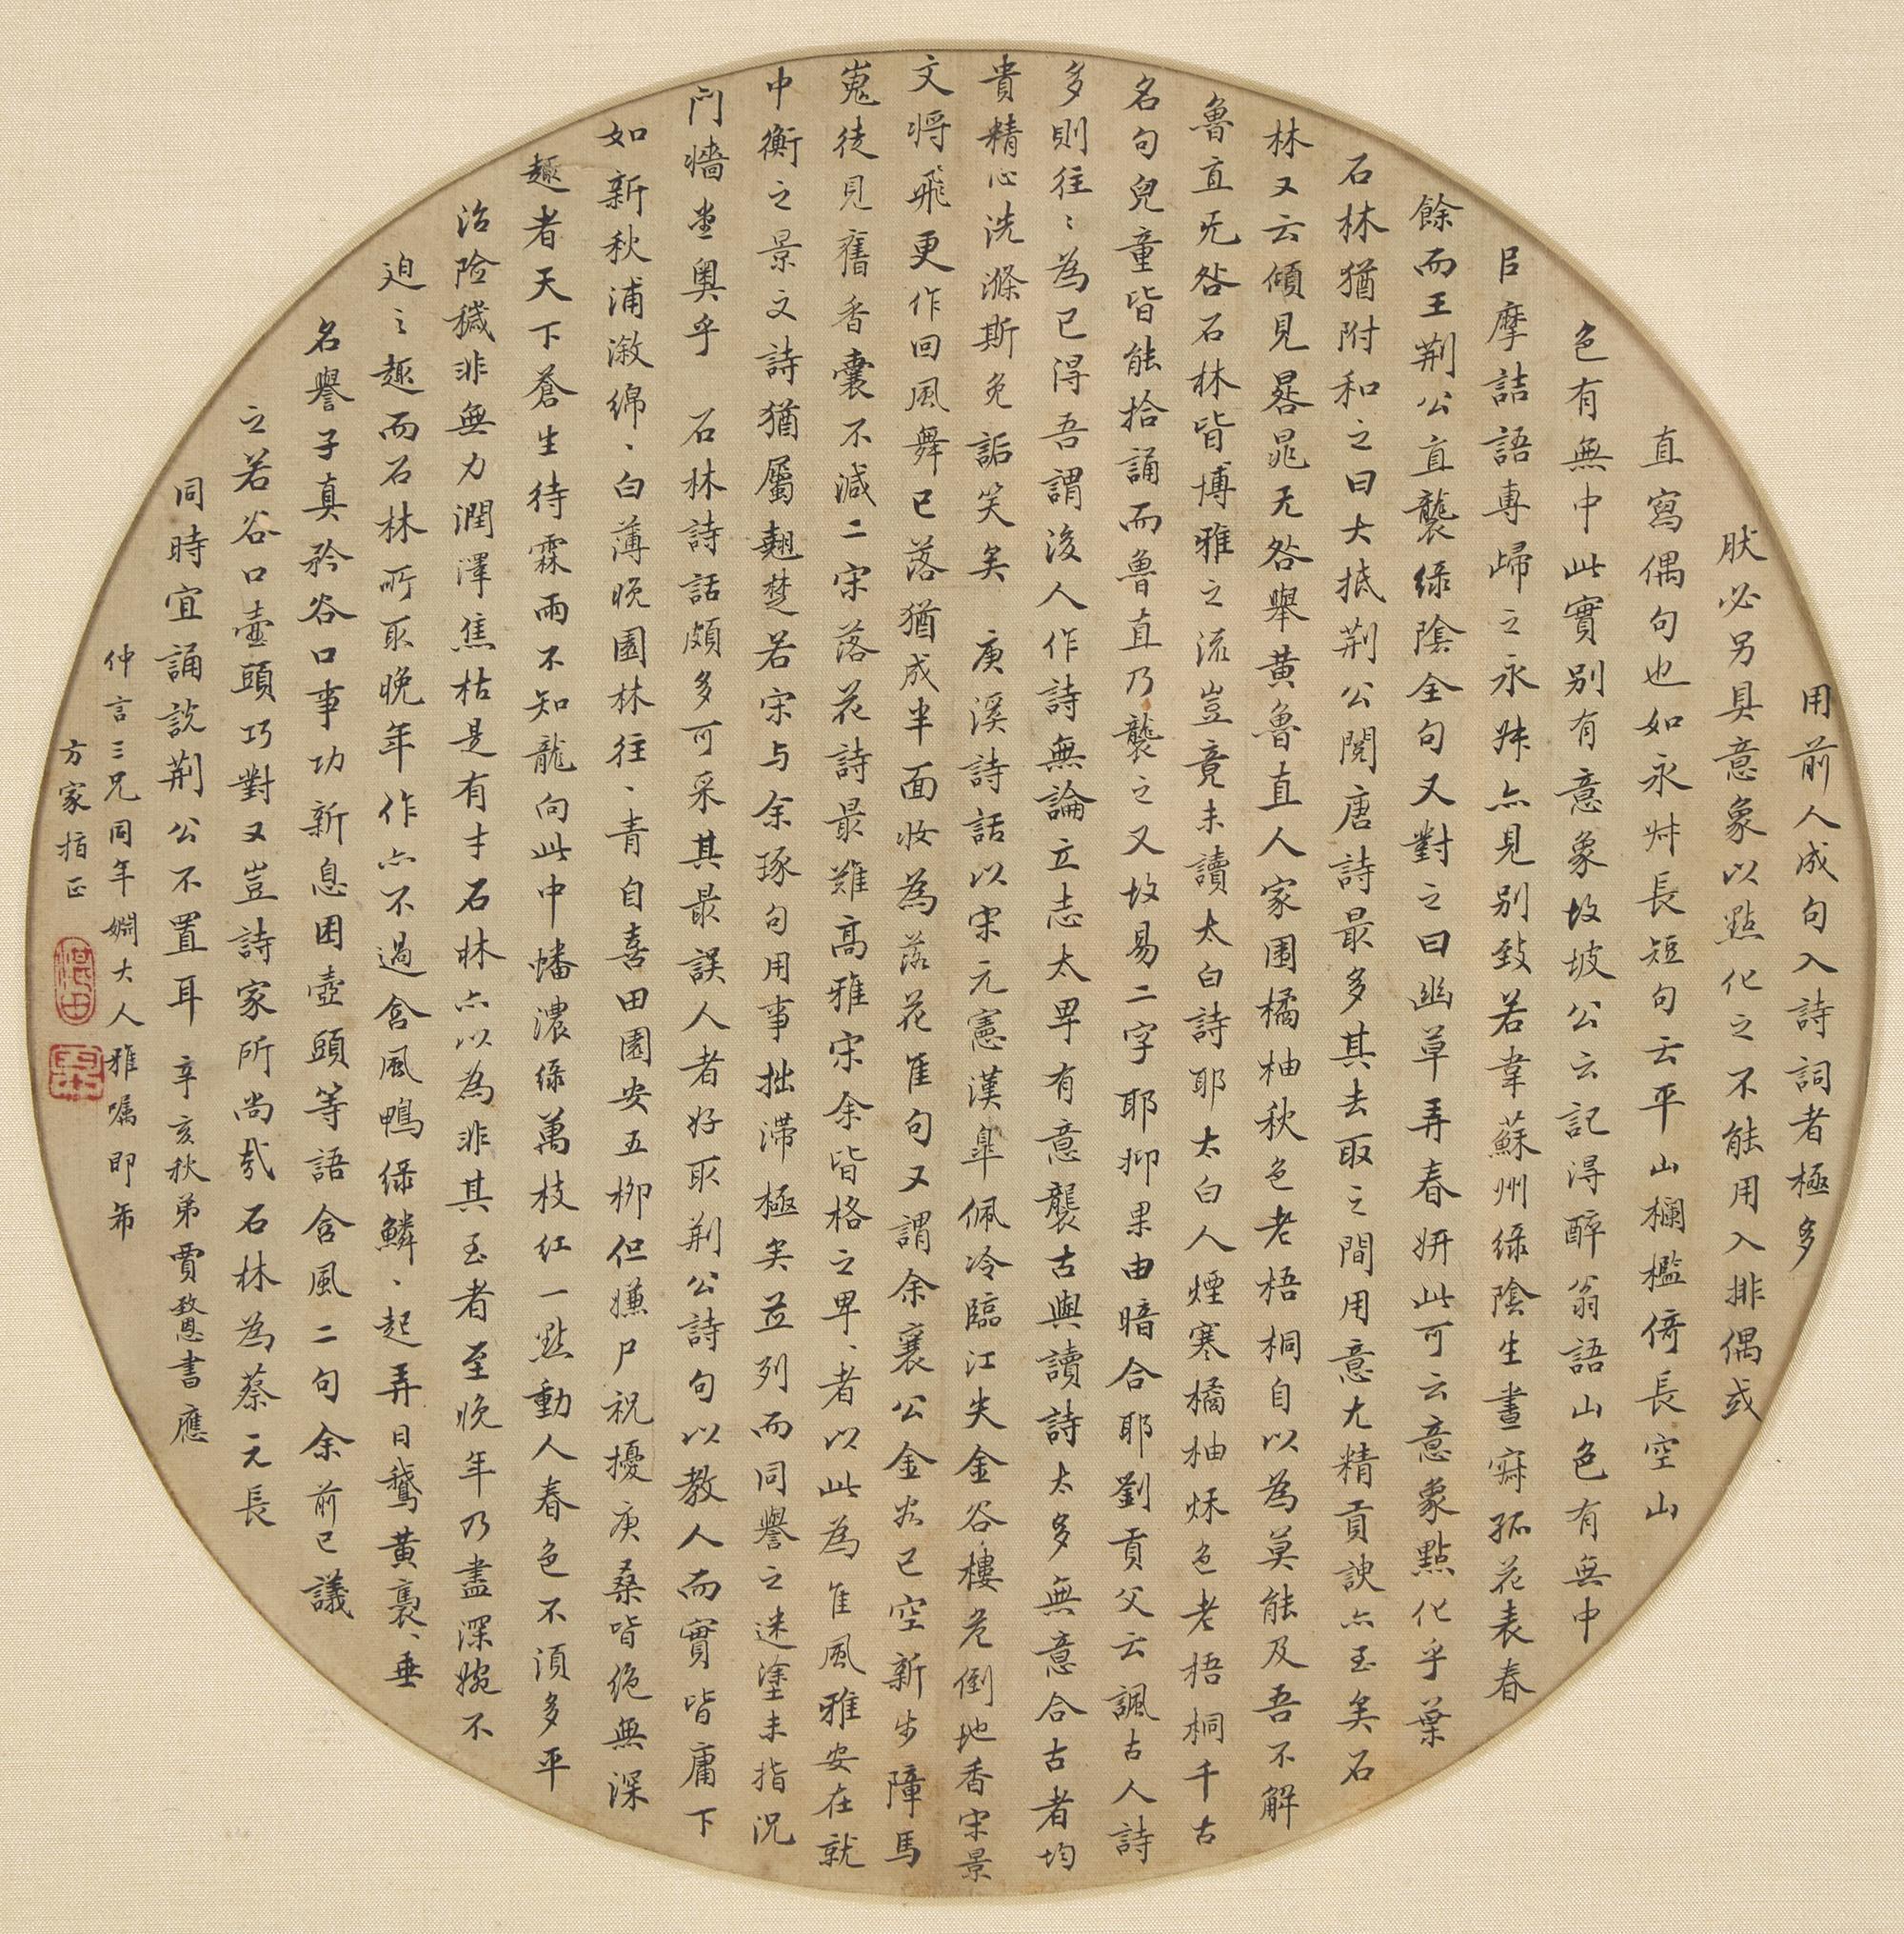 用前人成句入詩詞者極多
肰必另具意象以點化之不能用入排偶或
直寫偶句也如永叔長短句云平山欄檻倚長空山
色有無中此實別有意象故坡公云記得醉翁語山色有無中
臣摩詰語專歸之永叔亦見別致若韋蘇州綠陰生晝寂孤花表春
餘而王荆公直襲綠陰全句又對之曰幽草弄春妍此可云意象點化乎葉
石林猶附和之曰大抵荆公閱唐詩最多其去取之間用意尤精貢諛亦至矣石
林又云傾見晷晁无咎舉黃魯直人家圍橘柚秋色老梧桐自以為莫能及吾不解
魯直旡咎石林皆博雅之流豈竟未讀太白詩耶太白人煙寒橘柚秋色老梧桐千古
名句兒童皆能拾誦而魯直乃襲之又故易二字耶抑果由暗合耶劉貢父云諷古人詩
多則往〻為已得吾謂後人作詩無論立志太卑有意襲古與讀詩太多無意合古者均
貴精心洗滌斯免詬笑矣　庚溪詩話以宋元憲漢皐佩冷臨江失金谷樓危倒地香宋景
文将飛更作回風舞已落猶成半面妝為落花隹句又謂余襄公金谷已空新步障馬
嵬徒見舊香囊不減二宋落花詩最難高雅宋余皆格之卑、者以此為隹風雅安在就
中衡之景文詩猶屬翹楚若宋与余琢句用事拙滯極矣並列而同譽之迷塗未指況
門墻堂奧乎　石林詩話頗多可采其最誤人者好取荆公詩句以教人而實皆庸下
如新秋浦漵綿、白薄晚園林往、青自喜田園安五柳但嫌尸祝擾庚桑皆絕無深
趣者天下蒼生待霖雨不知龍向此中蟠濃綠萬枝紅一點動人春色不須多平
治險穢非無力潤澤焦枯是有才石林亦以為非其至者至晚年乃盡深婉不
迫之趣而石林所取晚年作亦不過含風鴨綠鱗、起弄日鵞黃裊、垂
名譽子真矜谷口事功新息困壺頭等語含風二句余前已議
之若谷口壺頭巧對又豈詩家所尚哉石林為蔡元長
同時宜誦說荆公不置耳　辛亥秋弟賈敦艮書應
仲言三兄同年嫺大人雅嘱即希
方家指正